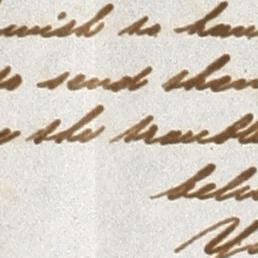 wish to hav
to send them
the trouble
belie
Yo